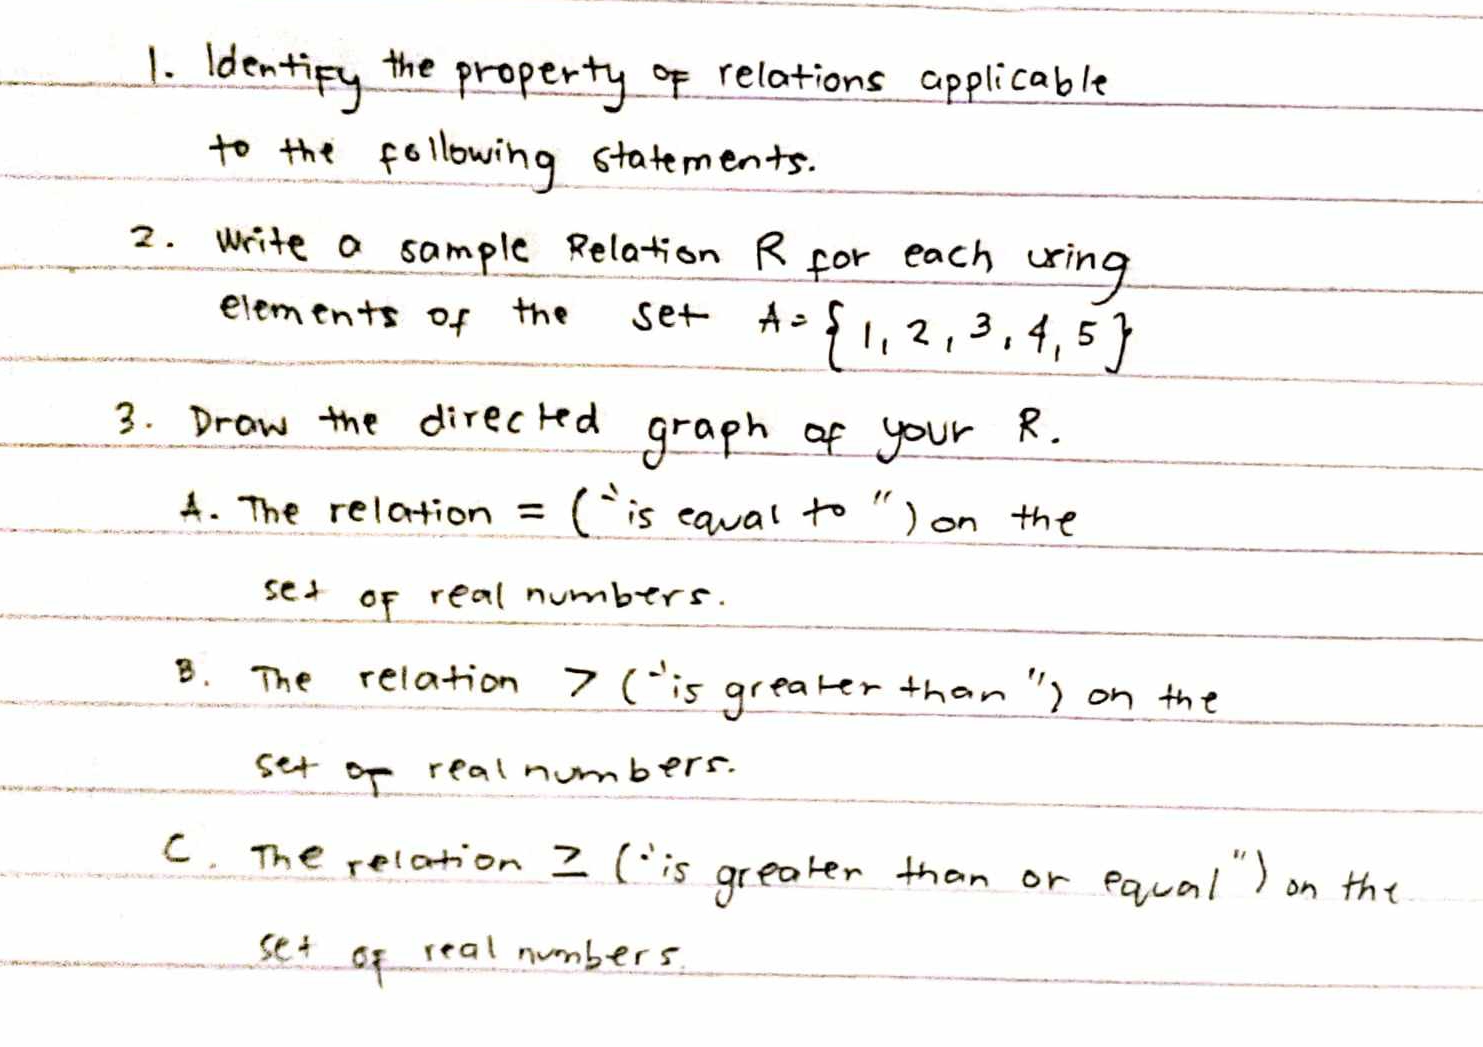 1. Identify the property of relations applicable
to the following statements.
2. Write a sample Relation R for each using
elements of the set A = {1, 2, 3, 4, 5}
3. Draw the directed graph of your R.
A. The relation = ("is equal to") on the
set of real numbers.
B. The relation > ("is greater than") on the
set of real numbers.
C. The relation ≥ ("is greater than or equal") on the
set of real numbers.